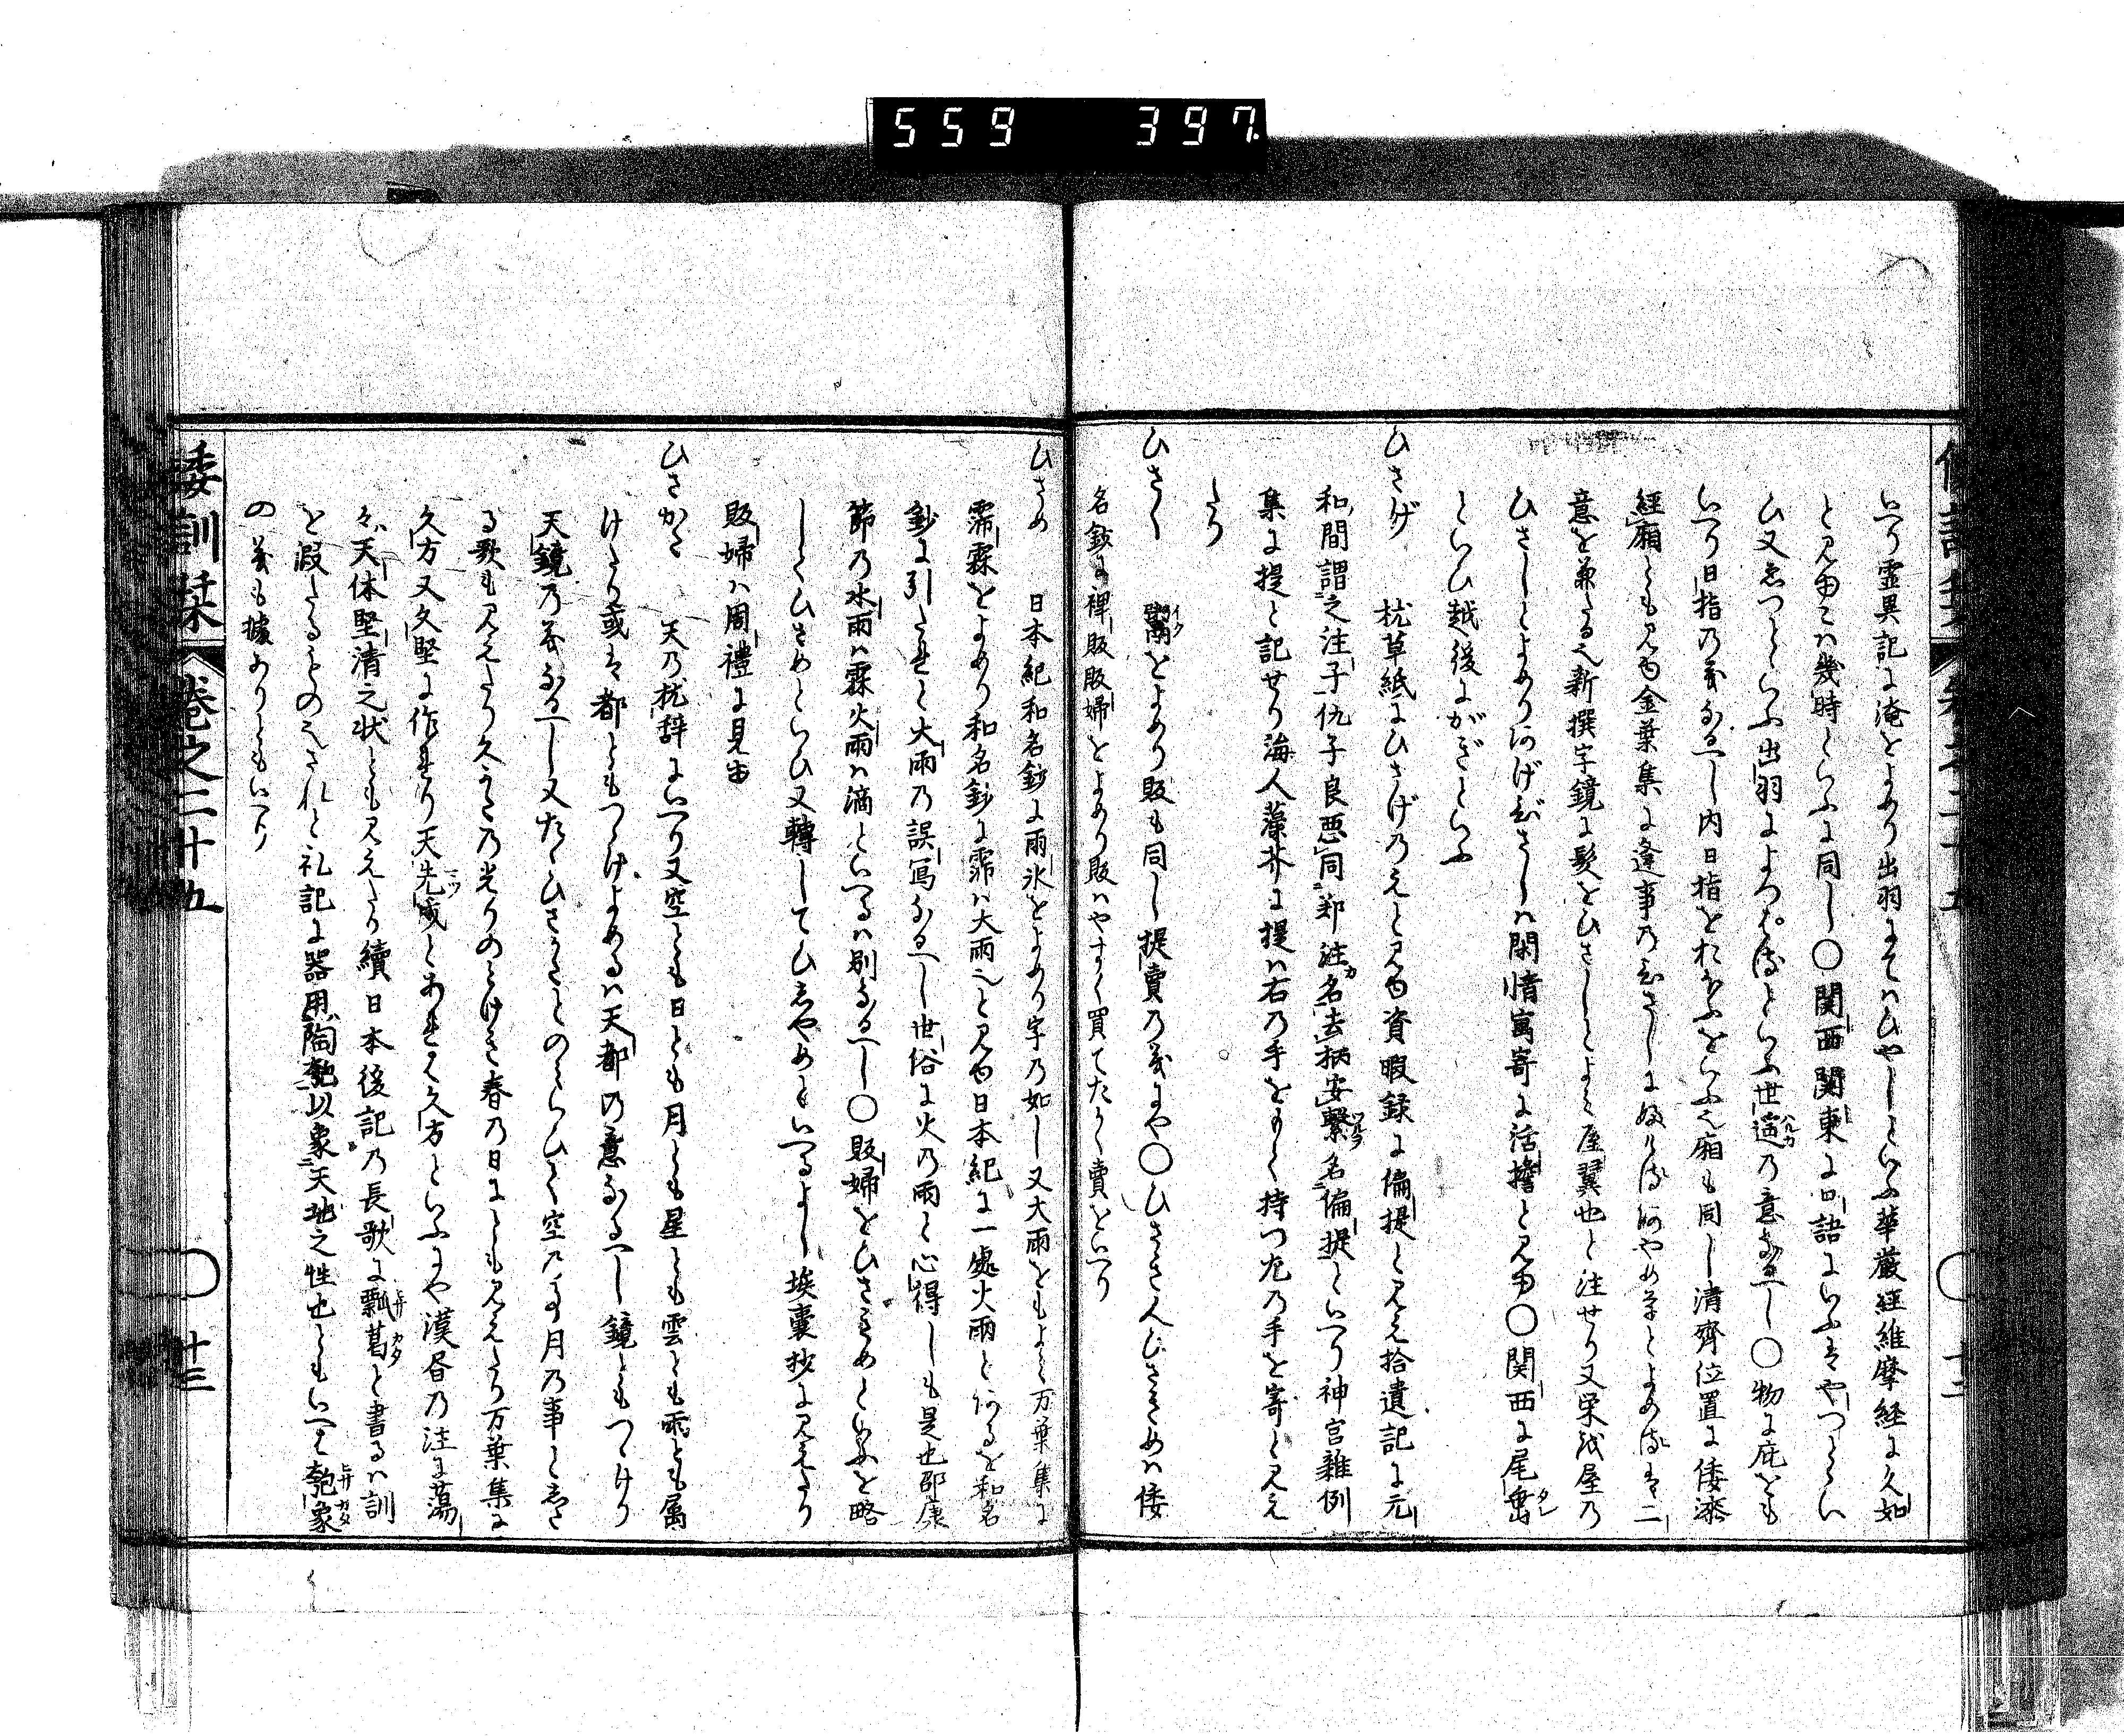 559 397
いへり霊異記に淹をよめり出羽にてハひやしといふ華厳経維摩経に久如
と見ゆこハ幾時といふに同し〇関西関東に口語にいふハやつとくい
ひ又ゑつとといふ出羽によつほとといふ世遥の意なるへし〇物に庇とも
いへり日指の義なるへし内日指をれもふをいふ也廂も同し清齊位置に倭漆
經廂とも見ゆ金葉集に逢事のひさしにふける阿やめ草とよめるハ二
意を兼たる也新撰字鏡に髪をひさしとよみ屋翼也と注せり又栄
ひさしとよめりあげひさしハ閑情寓寄に活擔と見ゆ〇関西に尾垂
といひ越後にがぎといふ
ひさげ 枕草紙にひさげのえと見ゆ資暇録に偏提と見え拾遺記に元
和間謂之注子仇子良惡同鄭注名去柄安繋名偏提といへり神宮雑例
集に提と記せり海人藻芥に提ハ右の手をもて持つ左の手を寄と見え
たり
ひさく 鬻をよめり販も同し提賣の義にや〇ひさき人ひさきめハ倭
名鈔に裨販販婦をよめり販ハやすく買てたかく賣をいへり
ひさめ 日本紀和名鈔に雨氷をよめり字の如し又大雨をもよみ万葉集に
霈霖をよめり和名鈔に霈ハ大雨也と見ゆ日本紀に一處火雨とあるを和名
鈔に引たると大雨の誤寫なるへし世俗に火の雨と心得しも是也邵康
節の水雨ハ霖火雨ハ滴といへるハ別なるへし〇販婦をひさきめといふを略
してひさめといひ又轉してひしやめといへるよし埃嚢抄に見えたり
販婦ハ周禮に見ゆ
ひさかた 天の枕辞にいへり又空とも日とも月とも星とも雲とも雨とも属
けたり或ハ都ともつゝけよめるハ天都の意なるへし鏡ともつゝけり
天鏡の義なるへし又たゝひさかたとのミいひて空の事月の事とした
る歌も見えたり久かたの光りのとけき春の日にとも見えたり万葉集に
久方又久堅に作れり天先成とあれハ久方といふにや漢書の注に蕩
々天体堅清之状とも見えたり續日本後記の長歌に瓢葛と書るハ訓
を假たるものゝされと礼記に器用陶匏以象天地之性也ともいへハ匏象
の義も據ありともいへり
倭訓栞 巻之二十五 十三